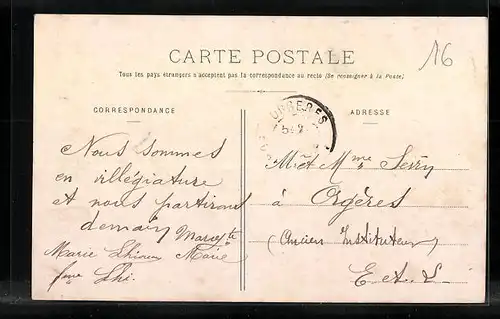 16
CARTE POSTALE
Tous les pays étrangers n'acceptent pas la correspondance au recto (Se renseigner à la Poste)
CORRESPONDANCE
ADRESSE
Nous sommes
en villégiature
et nous partirons
demain
Marie
Marie
à Orgères
(Ancien Instituteur)
E et L